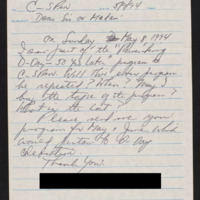 C-Span 5/9/94
Dear Sir or Madam
On Sunday May 8, 1994
I saw part of the "
D-Day - 50 yrs later" program to
C-Span. Will this program
be repeated? When? May I
buy the tape of the program?
What is the cost?
Please send me your
program for May & June which
would pertain to D-Day
celebration.
Thank You.